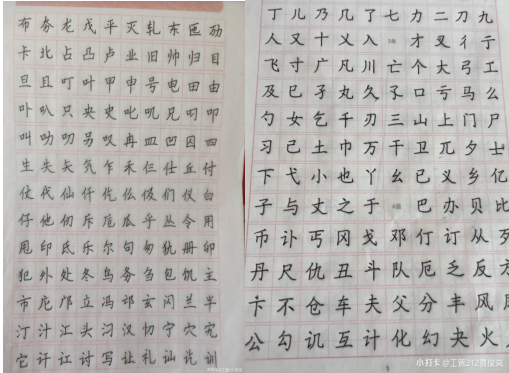 布夯龙戊平灭轧东匝劢
卡北占凸卢业旧帅归目
旦且叮叶甲申号电田由
卟叭只央史叱叽兄叼叩
叫叻叨另叹冉皿凹囚四
生失矢气乍禾仨仕丘付
仗代仙仟仡仫伋们仪白
仔他仞斥卮瓜乎丛令用
甩印氐乐尔句匆犰册卯
犯外处冬鸟务刍包饥主
市庀邝立冯邙玄闪兰半
汀汁汇头汈汉忉宁穴宄
它讦讧讨写让礼讪讫训
丁儿乃几了七力二刀九
人又十乂入才叉彳亍
飞寸广凡川亡个大弓工
及巳孑丸久孓口亏马么
勺女乞千刃三山上门尸
习己土巾万干卫兀夕士
下弋小也丫幺已义乡亿
子与丈之于巴办贝比
币讣丐冈戈邓仃订从歹
丹尺仇丑斗队厄乏反方
卞不仓车夫父分丰风
公勾讥互计化幻夬火
5
小打卡@王新212曾俊岚